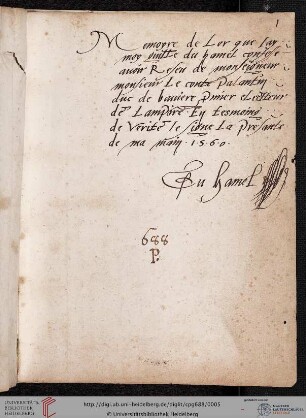 1
Memoyre de Lor que Jay
moy
du hamel confesse
avoir Reseu de monseigneur
monsieur Le conte palantin
duc de baviere p̃mier electeur
de Lampire En tesmoing
de verite Je signe La presante
de ma main · 1560 ·
Du hamel
688
P.
UNIVERSITÄTS-
BIBLIOTHEK
HEIDELBERG
http://digi.ub.uni-heidelberg.de/diglit/cpg688/0005
© Universitätsbibliothek Heidelberg